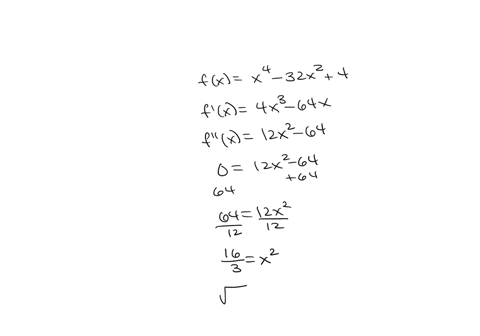 f(x) = x⁴ - 32x² + 4
f'(x) = 4x³ - 64x
f''(x) = 12x² - 64
0 = 12x² - 64
64 +64
64/12 = 12x²/12
16/3 = x²
√